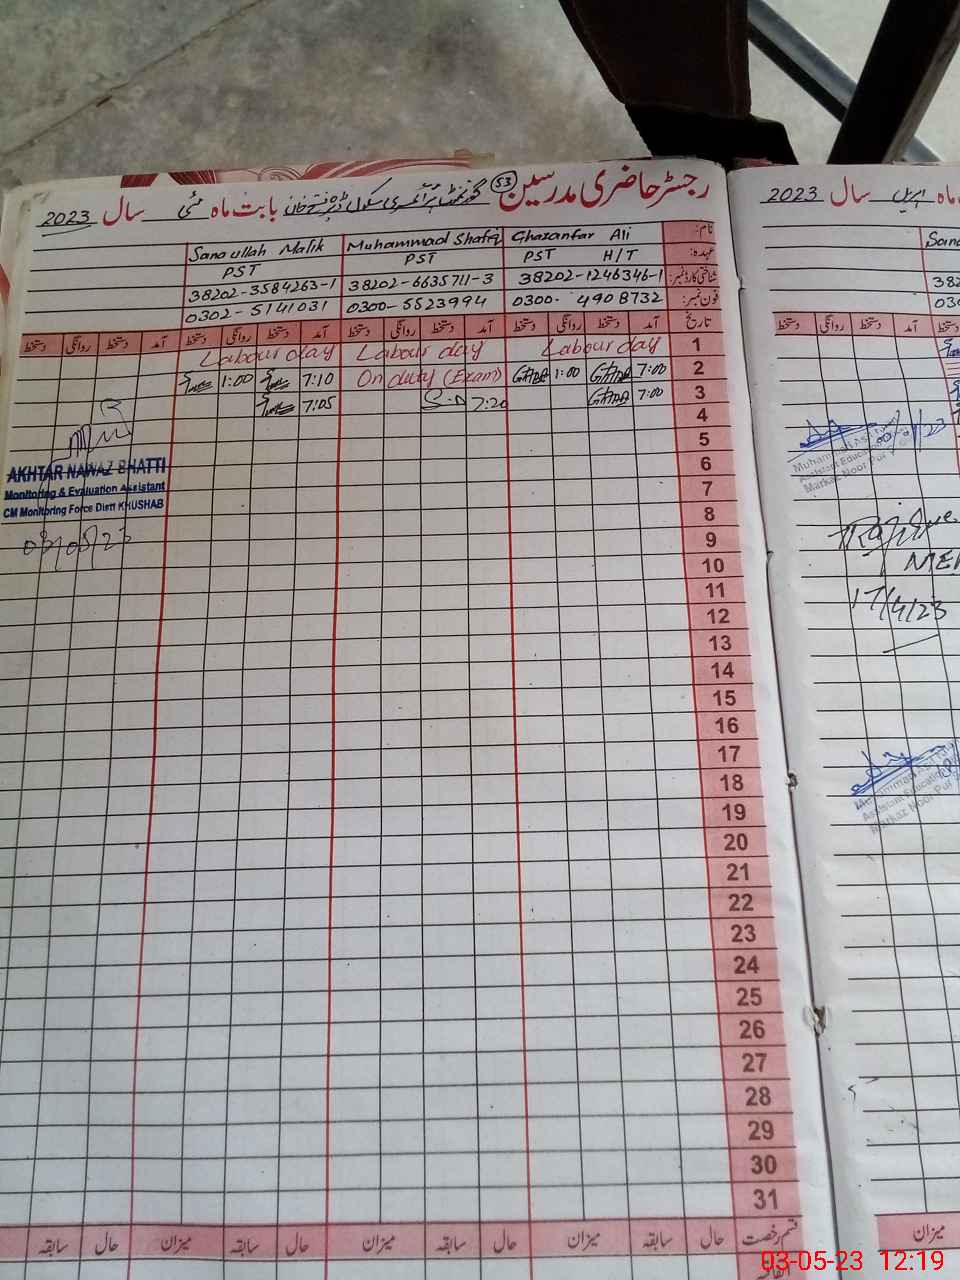 رجسٹر حاضری مدرسین 53 گورنمنٹ پرائمری سکول ڈیرہ فتح خان بابت ماہ مئی سال 2023
نام: Ghazanfar Ali Muhammad Shafiq Sanaullah Malik
عہدہ: PST H/T PST PST
شناختی کارڈ نمبر: 38202-1246346-1 38202-6635711-3 38202-3584263-1
فون نمبر: 0300-4908732 0300-5523994 0302-5141031
تاریخ آمد دستخط روانگی دستخط آمد دستخط روانگی دستخط آمد دستخط روانگی دستخط آمد دستخط روانگی دستخط
1 Labour day Labour day Labour day
2 7:00 1:00 On duty (Exam) 7:10 1:00
3 7:00 S.D 7:20 7:05
4
5
6
7
8
9
10
11
12
13
14
15
16
17
18
19
20
21
22
23
24
25
26
27
28
29
30
31
AKHTAR NAWAZ BHATTI
Monitoring & Evaluation Assistant
CM Monitoring Force Distt KHUSHAB
03/05/23
قسم رخصت حال سابقہ میزان حال سابقہ میزان حال سابقہ میزان حال سابقہ
ماہ اپریل سال 2023
آمد دستخط روانگی دستخط
Assistant Education
Markaz Noor Pur
17/4/23
Assistant Education
Markaz Noor Pur
میزان
03-05-23 12:19